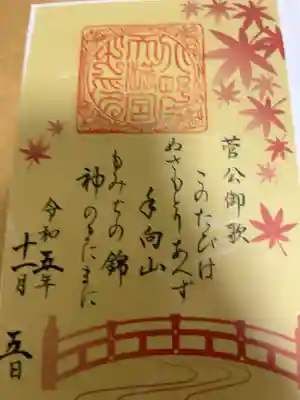 菅公御歌
このたびは
ぬさもとりあへず
手向山
もみぢの錦
神のまにまに
令和五年
十一月
五日